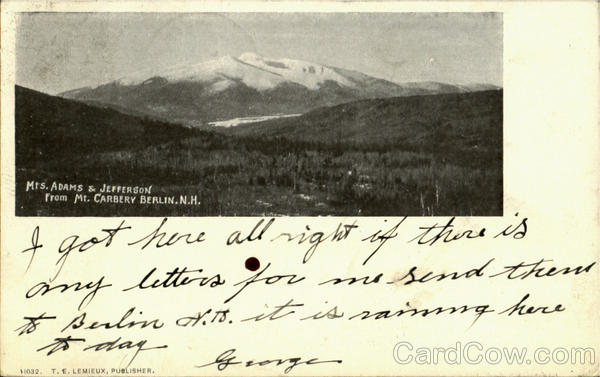 Mts. Adams & Jefferson
From Mt. Carbery Berlin. N.H.
I got here all right if there is
any letters for me send them
to Berlin N.H. it is raining here
to day
George
11032. T. E. LEMIEUX, PUBLISHER.
CardCow.com